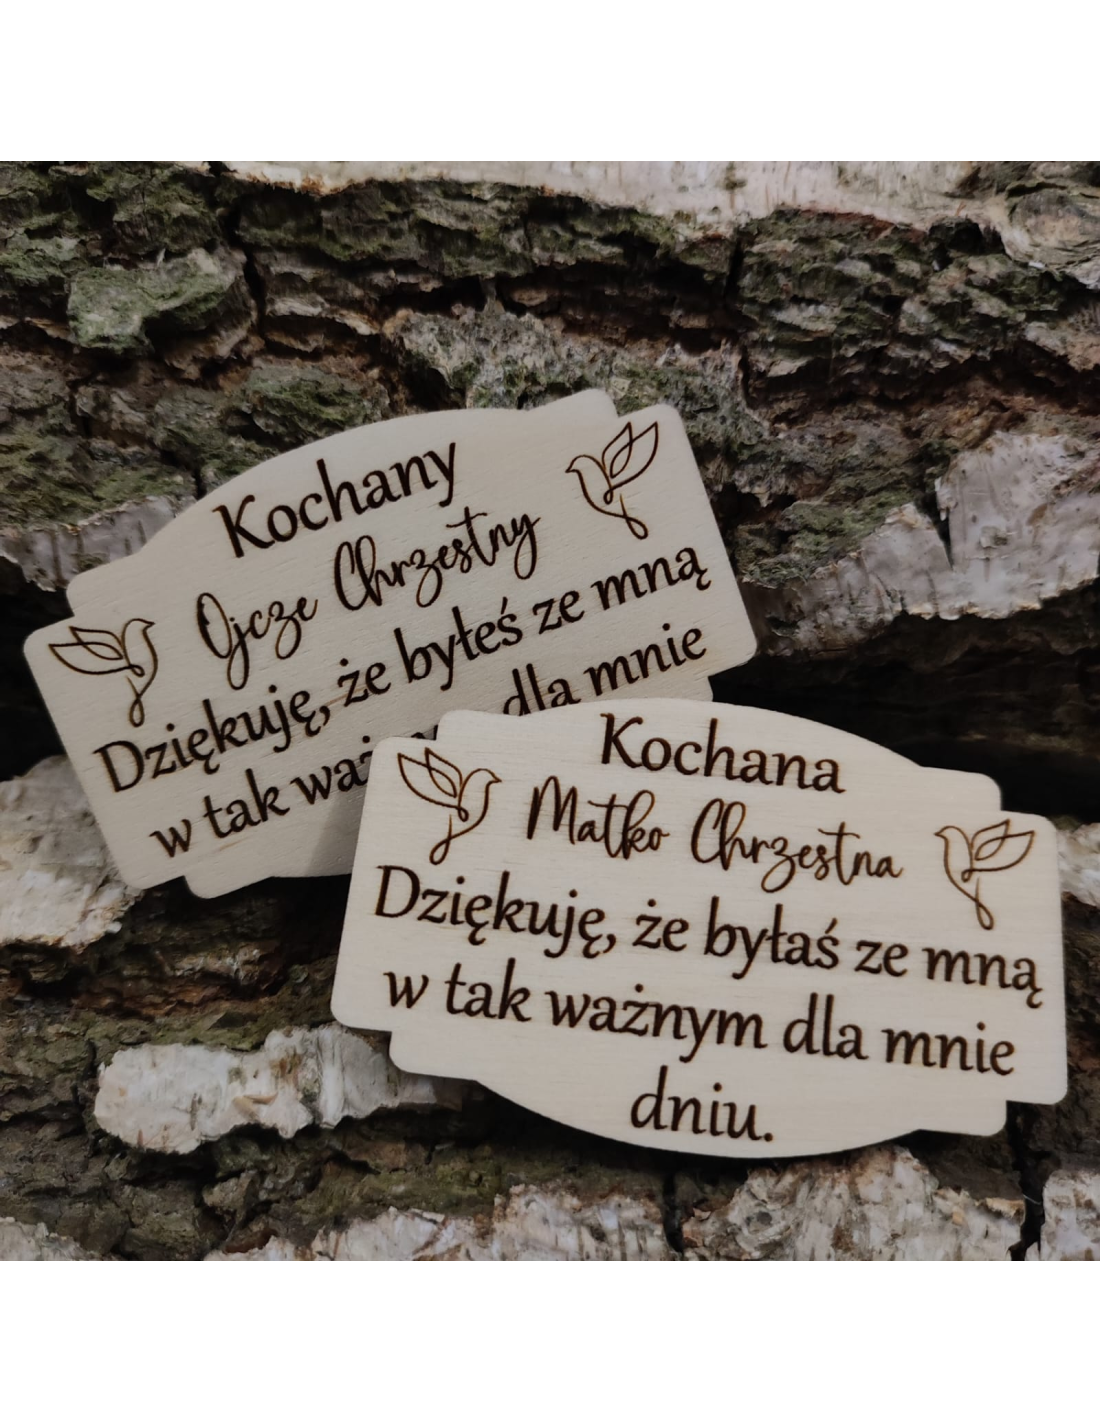 Kochany
Ojcze Chrzestny
Dziękuję, że byłeś ze mną
w tak dla mnie
Kochana
Matko Chrzestna
Dziękuję, że byłaś ze mną
w tak ważnym dla mnie
dniu.